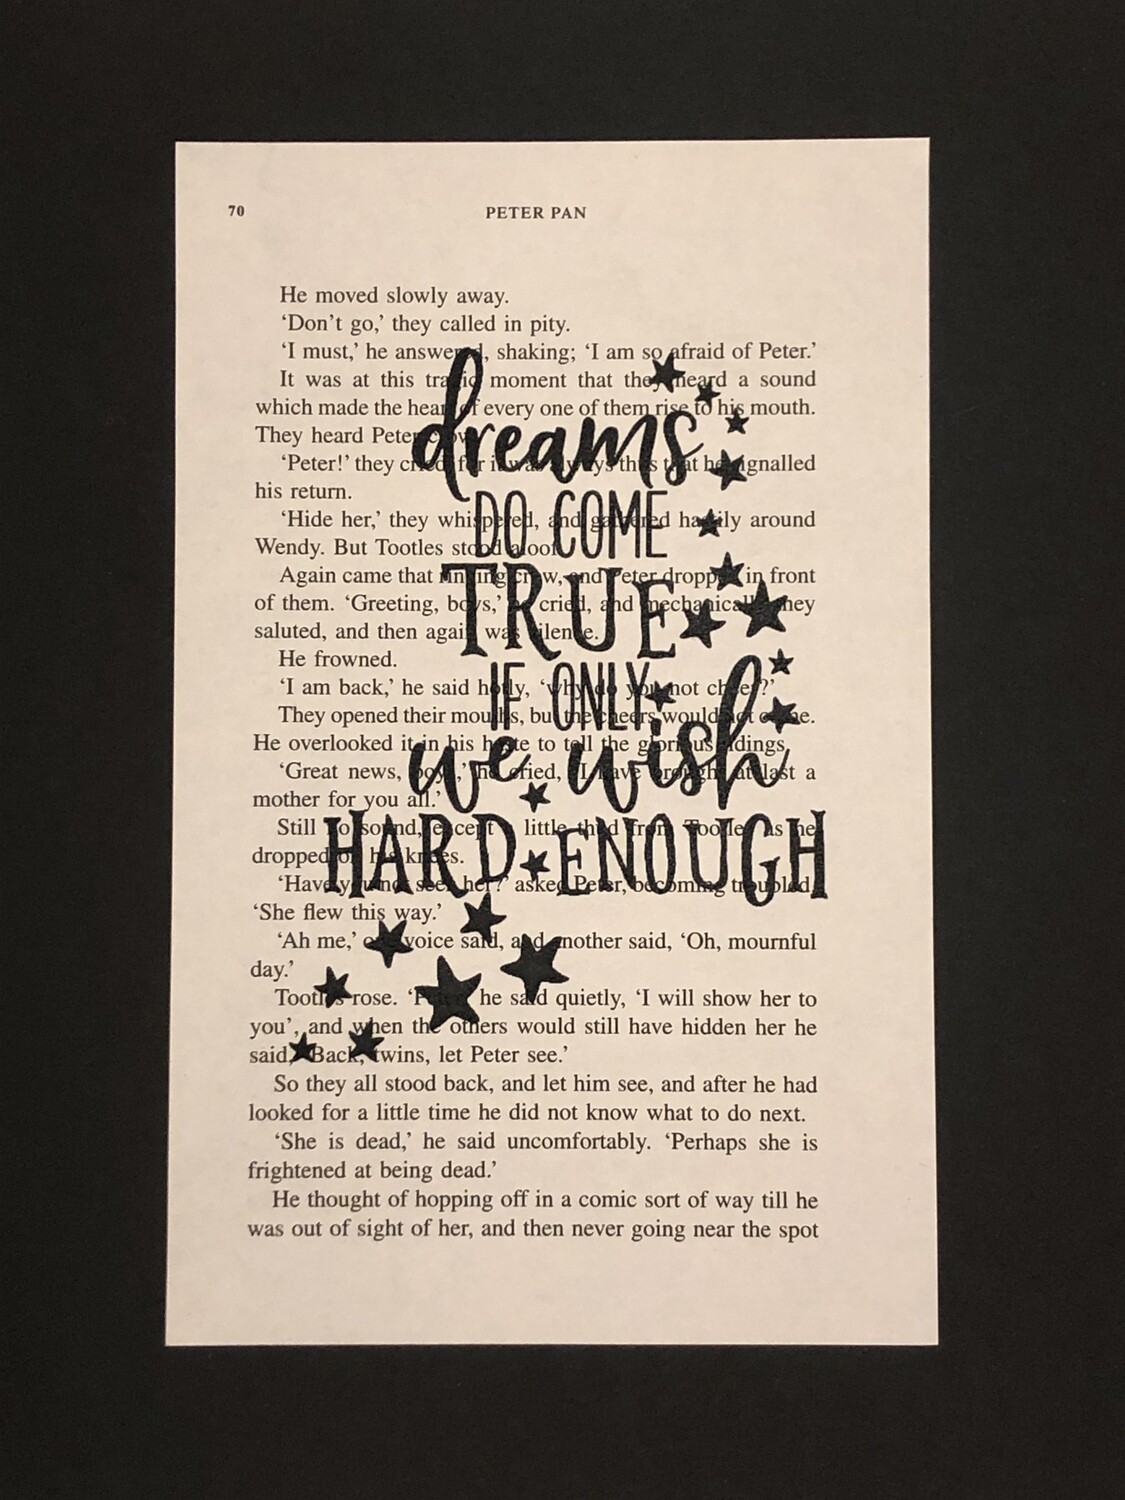 70
PETER PAN
He moved slowly away.
‘Don’t go,’ they called in pity.
‘I must,’ he answered, shaking; ‘I am so afraid of Peter.’
It was at this tragic moment that they heard a sound
which made the heart of every one of them rise to his mouth.
They heard Peter crow.
‘Peter!’ they cried, for it was always thus that he signalled
his return.
‘Hide her,’ they whispered, and gathered hastily around
Wendy. But Tootles stood aloof.
Again came that ringing crow, and Peter dropped in front
of them. ‘Greeting, boys,’ he cried, and mechanically they
saluted, and then again was silence.
He frowned.
‘I am back,’ he said hotly, ‘why do you not cheer?’
They opened their mouths, but the cheers would not come.
He overlooked it in his haste to tell the glorious tidings.
‘Great news, boys,’ he cried, ‘I have brought at last a
mother for you all.’
Still no sound, except a little thud from Tootles as he
dropped on his knees.
‘Have you not seen her?’ asked Peter, becoming troubled.
‘She flew this way.’
‘Ah me,’ one voice said, and another said, ‘Oh, mournful
day.’
Tootles rose. ‘Peter,’ he said quietly, ‘I will show her to
you’, and when the others would still have hidden her he
said, ‘Back, twins, let Peter see.’
So they all stood back, and let him see, and after he had
looked for a little time he did not know what to do next.
‘She is dead,’ he said uncomfortably. ‘Perhaps she is
frightened at being dead.’
He thought of hopping off in a comic sort of way till he
was out of sight of her, and then never going near the spot
dreams
DO COME
TRUE
IF ONLY
we wish
HARD ENOUGH